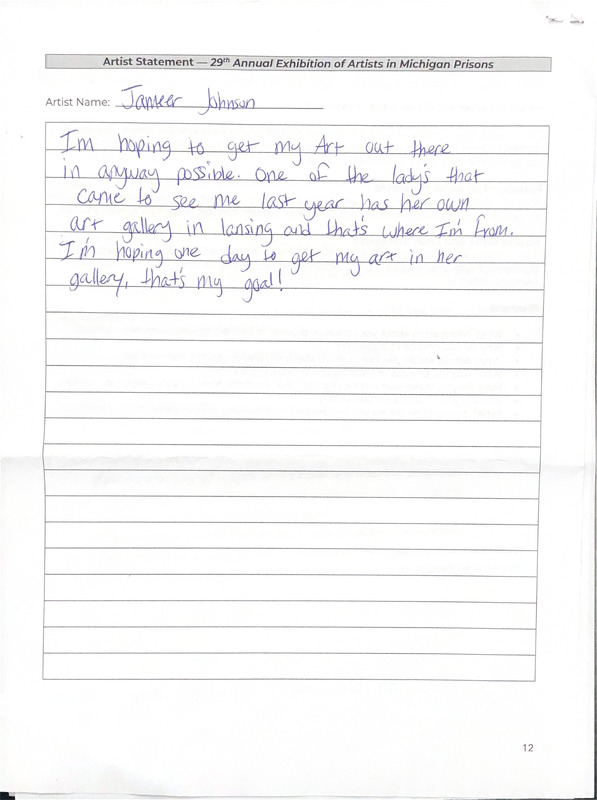 Artist Statement — 29th Annual Exhibition of Artists in Michigan Prisons
Artist Name: Johnson
Im hoping to get my Art out there
in anyway possible. One of the lady's that
came to see me last year has her own
art gallery in lansing and that's where I'm from.
I'm hoping one day to get my art in her
gallery, that's my goal!
12